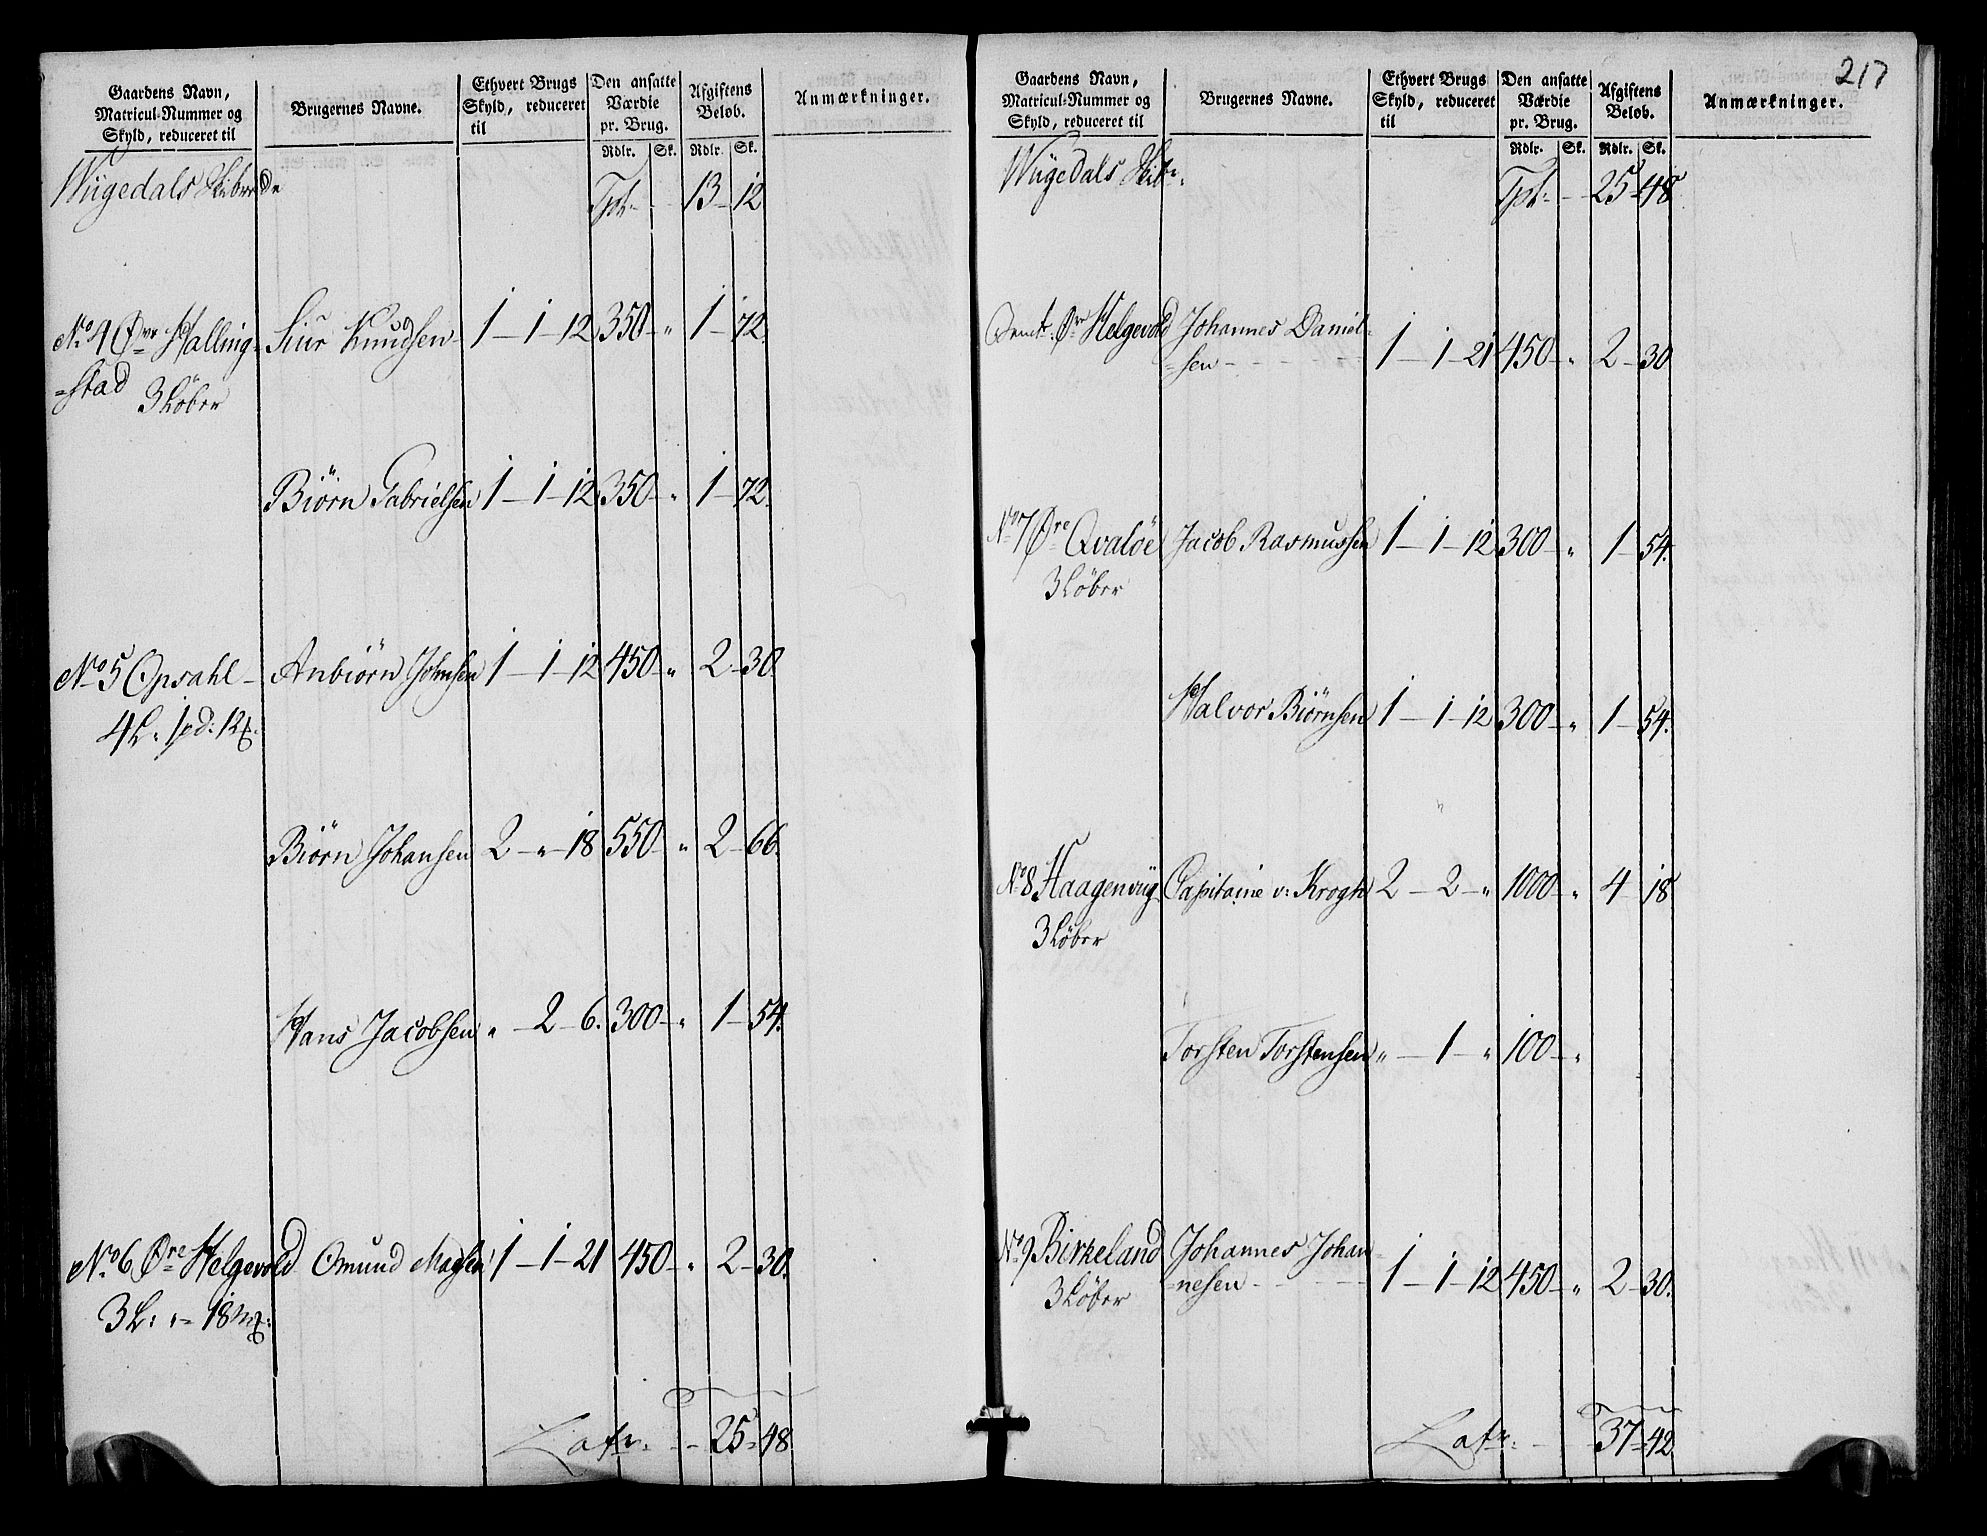 Gaardens Navn, Matricul-Nummer og Skyld, reduceret til | Brugernes Navne. | Ethvert Brugs Skyld, reduceret til | Den ansatte Værdie pr. Brug. Rdlr. Sk. | Afgiftens Beløb. Rdlr. Sk. | Anmærkninger.
Wiigedals Skibrede Tpt: - 13 - 12
No 4 Øvr Halling- Siur Knudsen - 1 - 1 - 12 350 - " 1 - 72.
=stad 3 Løber
Biörn Gabrielsen 1 - 1 - 12 350 - " 1 - 72.
No 5 Opsahl - Anbiörn Johnsen 1 - 1 - 12 450 - " 2 - 30
4 L: 1 pd: 12 #.
Biörn Johansen 2 - " - 18 550 - " 2 - 66.
Hans Jacobsen " - 2 - 6. 300 - " 1 - 54.
No 6 Øre Helgevold Omund 1 - 1 - 21 450 - " 2 - 30.
3 L: " = 18 m#:
Latr: - - 25 = 48
217
Gaardens Navn, Matricul-Nummer og Skyld, reduceret til | Brugernes Navne. | Ethvert Brugs Skyld, reduceret til | Den ansatte Værdie pr. Brug. Rdlr. Sk. | Afgiftens Beløb. Rdlr. Sk. | Anmærkninger.
Wiigedals Skibr. Tpt: - 25 = 48
Øre Helgevold Johannes Daniel- 1 - 1 - 21 450 - " 2 - 30
=sen - - - -
No 7 Øre Qvalöe Jacob Rasmussen 1 - 1 - 12 300 - " 1 - 54.
3 Löber
Halvor Biörnsen 1 - 1 - 12 300 - " 1 - 54.
No 8 Haagenviig Capitaine v: Krogh 2 - 2 - " 1000 - " 4 - 18
3 Löber
Torsten Torstensen " - 1 - " 100 - "
No 9 Birkeland Johannes Johan- 1 - 1 - 12 450 - " 2 - 30.
3 Löber =nesen - - - -
Latr: - 37 = 42